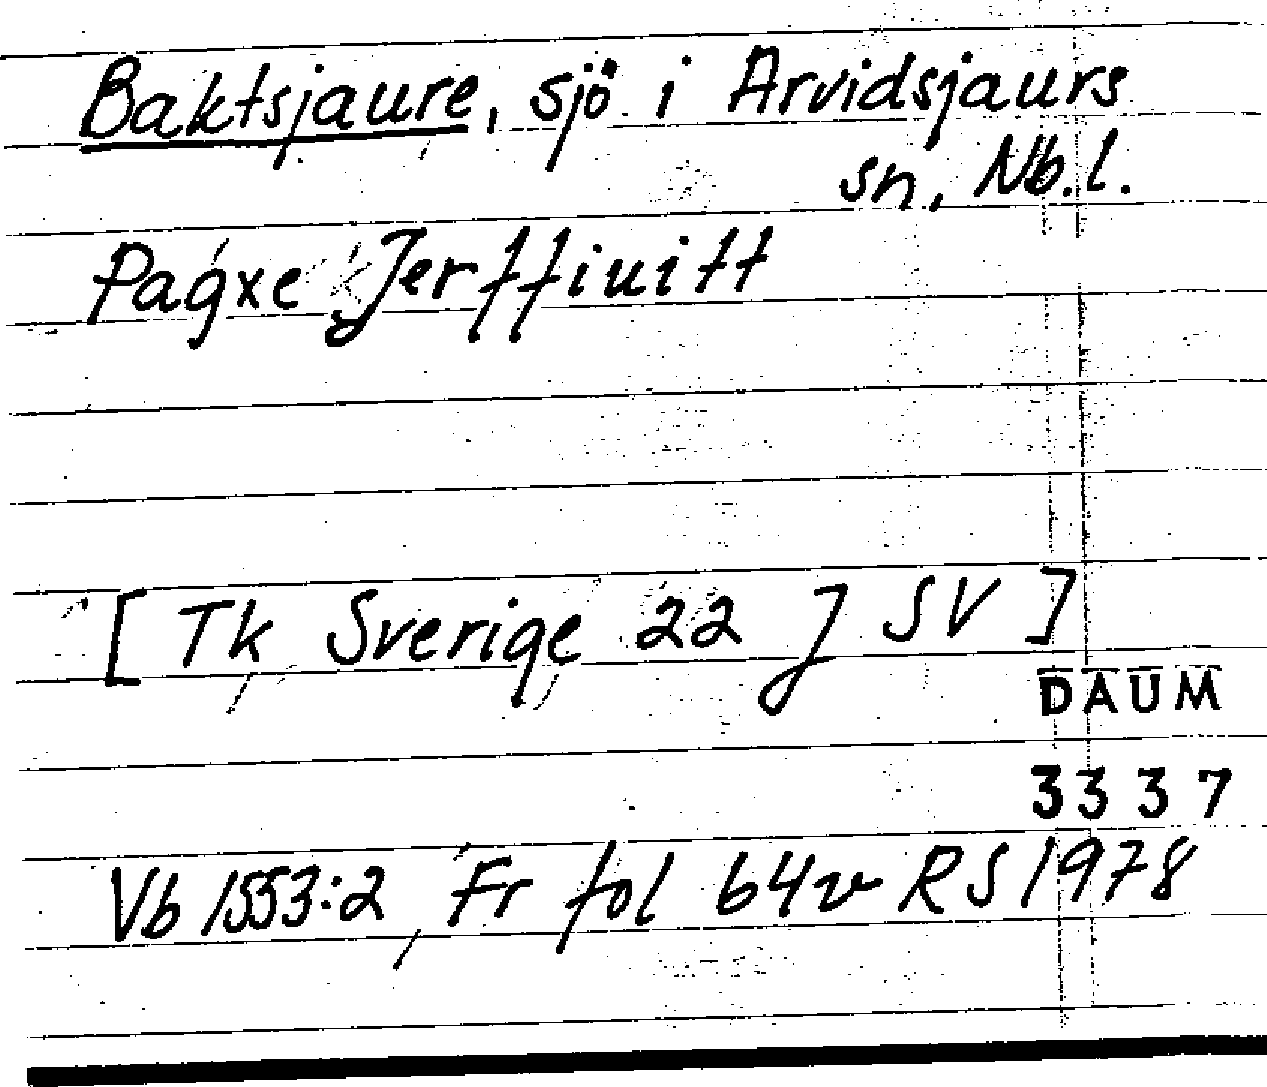 Baktsjaure, sjö i Arvidsjaurs
sn, Nb.l.
Pagxe Jerffiuitt
[ Tk Sverige 22 J SV ]
DAUM
3337
Vb 1553:2, Fr fol 64v RS 1978